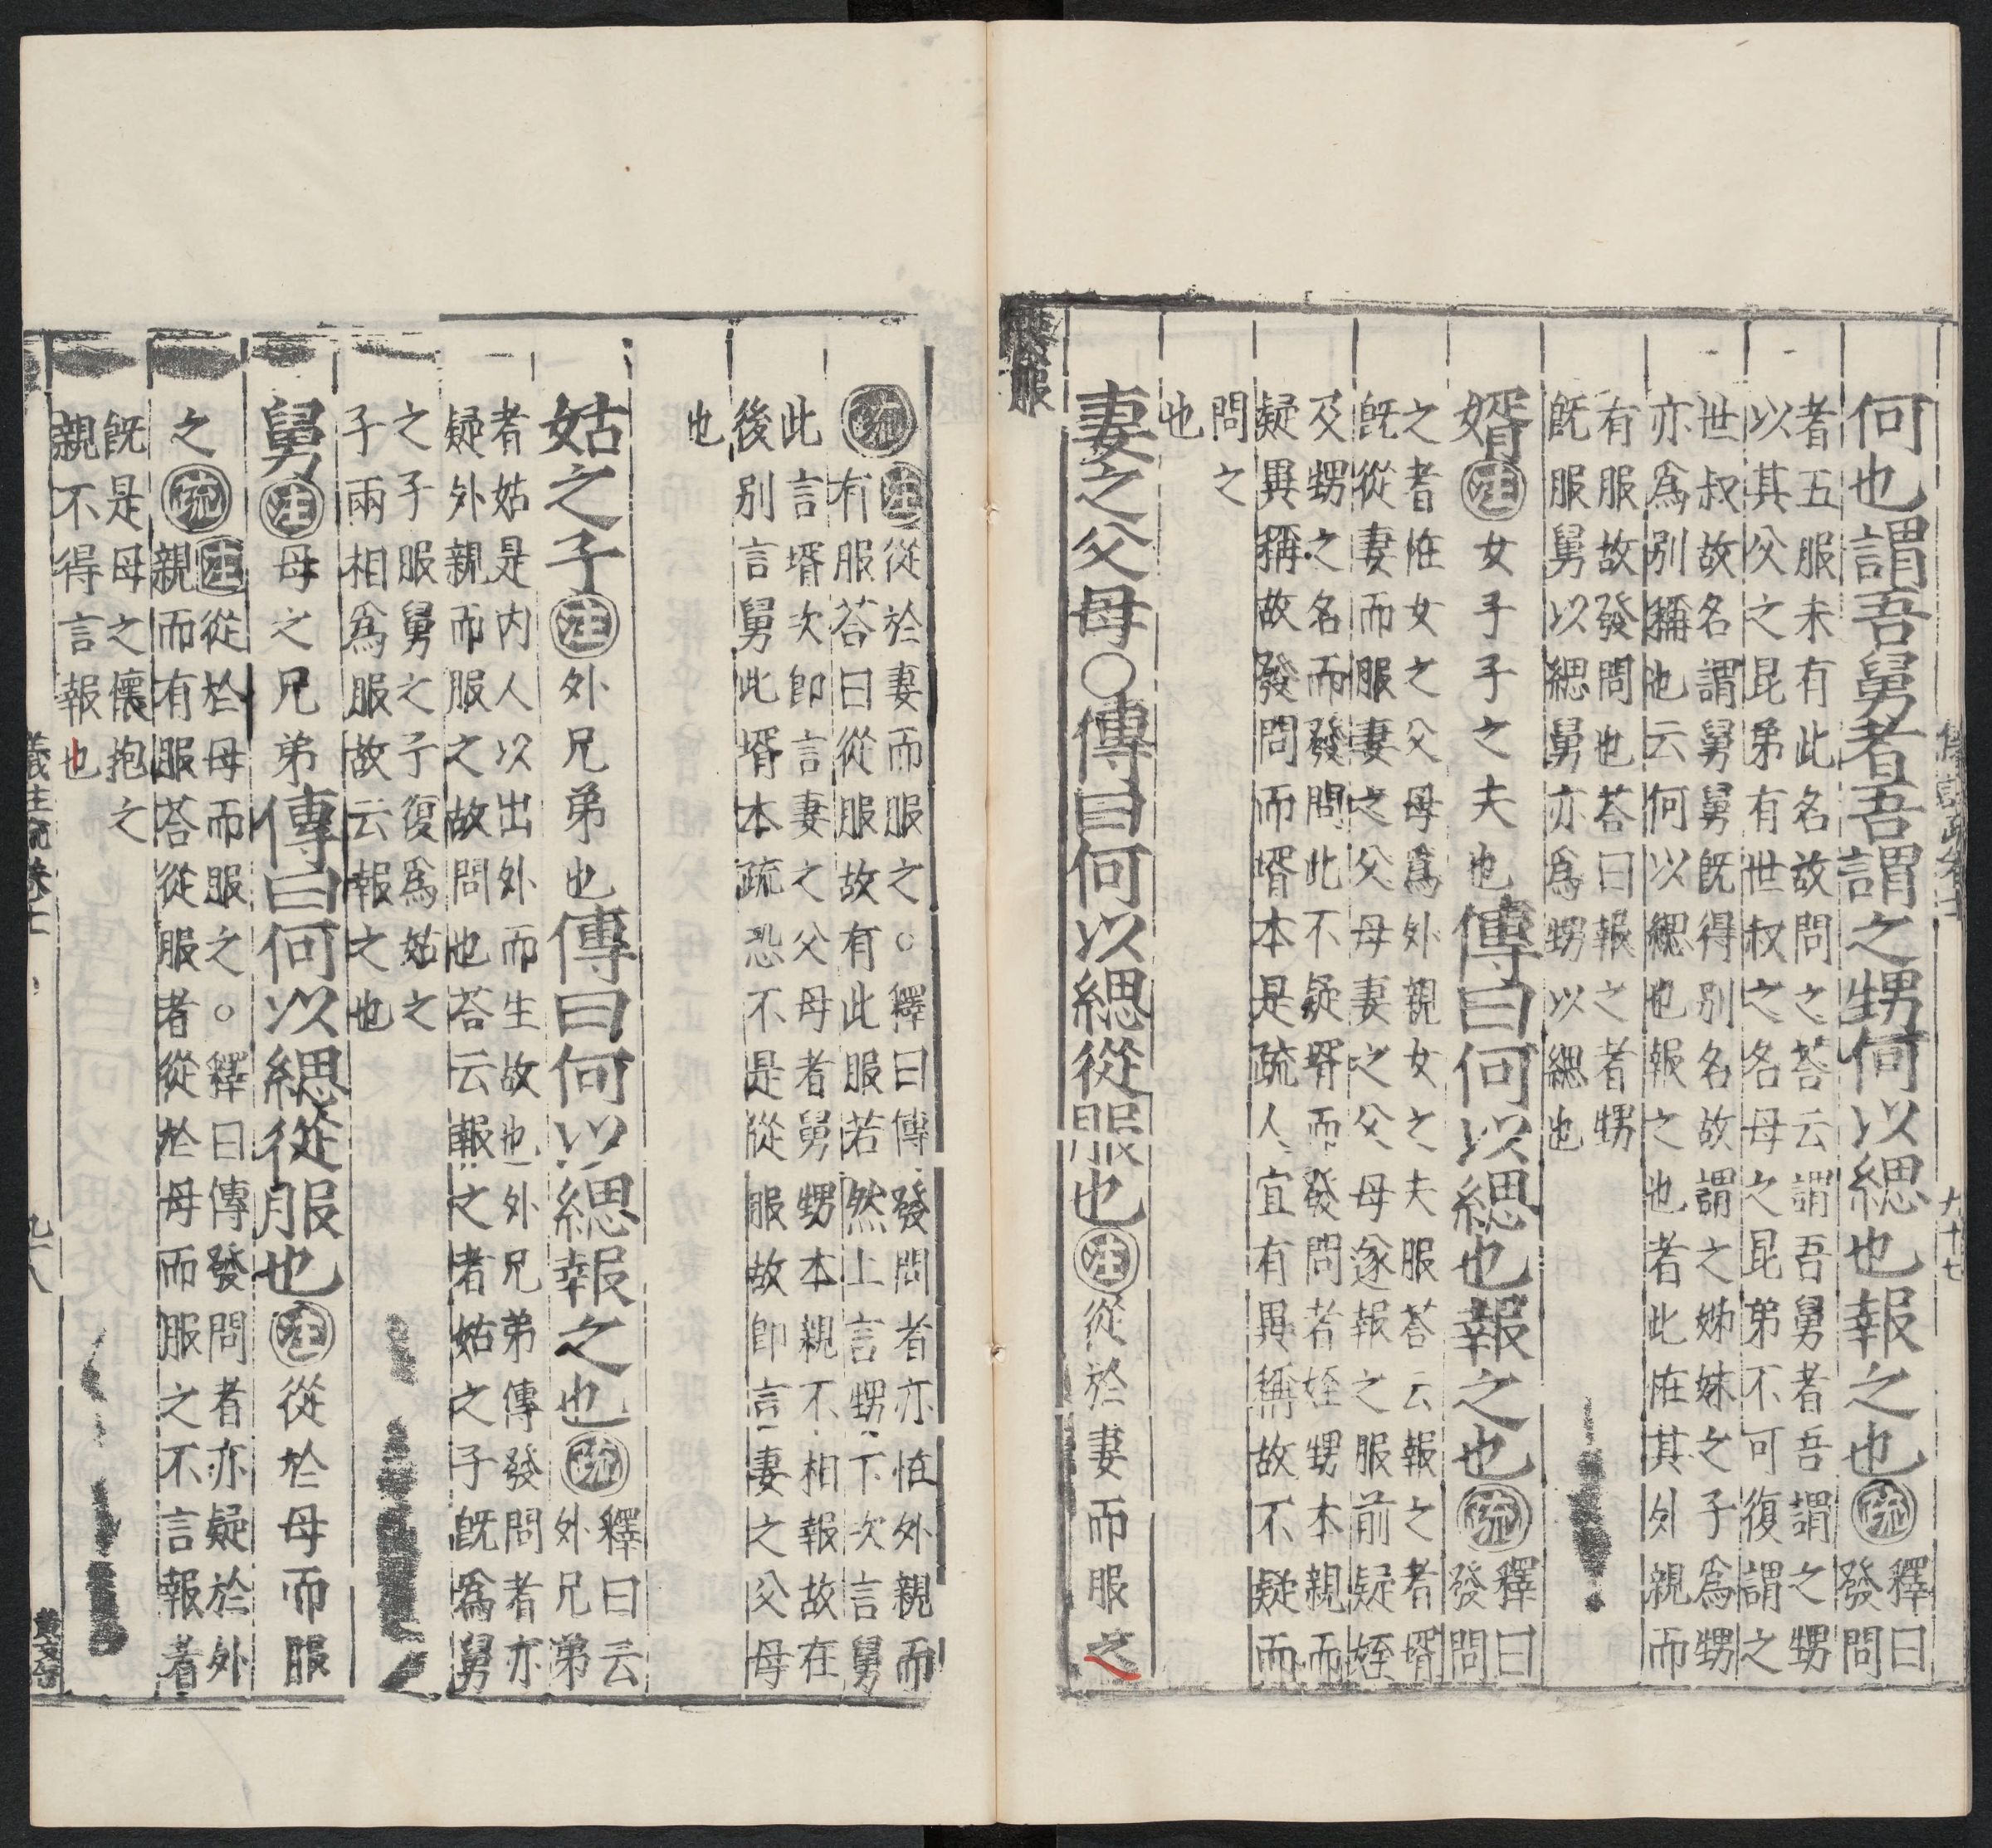 何也謂吾舅者吾謂之甥何以緦也報之也疏釋曰
發問
者五服未有此名故問之荅云謂吾舅者吾謂之甥
以其父之昆弟有世叔之名母之昆弟不可復謂之
世叔故名謂舅舅既得别名故謂之姊妹之子爲甥
亦爲别稱也云何以緦也報之也者此恠其外親而
有服故發問也荅曰報之者甥
既服舅以緦舅亦爲甥以緦也
壻注女子子之夫也傳曰何以緦也報之也疏釋曰
發問
之者恠女之父母爲外親女之夫服荅云報之者壻
既從妻而服妻之父母妻之父母遂報之服前疑姪
及甥之名而發問此不疑壻而發問者姪甥本親而
疑異稱故發問而壻本是疏人宜有異稱故不疑而
問之
也
妻之父母○傳曰何以緦從服也注從於妻而服之
疏注從於妻而服之○釋曰傳發問者亦恠外親而
有服荅曰從服故有此服若然上言甥下次言舅
此言壻次即言妻之父母者舅甥本親不相報故在
後别言舅此壻本疏恐不是從服故即言妻之父母
也
姑之子注外兄弟也傳曰何以緦報之也疏釋曰云
外兄弟
者姑是内人以出外而生故也外兄弟傳發問者亦
疑外親而服之故問也荅云報之者姑之子既爲舅
之子服舅之子復爲姑之
子兩相爲服故云報之也
舅注母之兄弟傳曰何以緦從服也注從於母而服
之疏注從於母而服之○釋曰傳發問者亦疑於外
親而有服荅從服者從於母而服之不言報者
既是母之懷抱之
親不得言報也